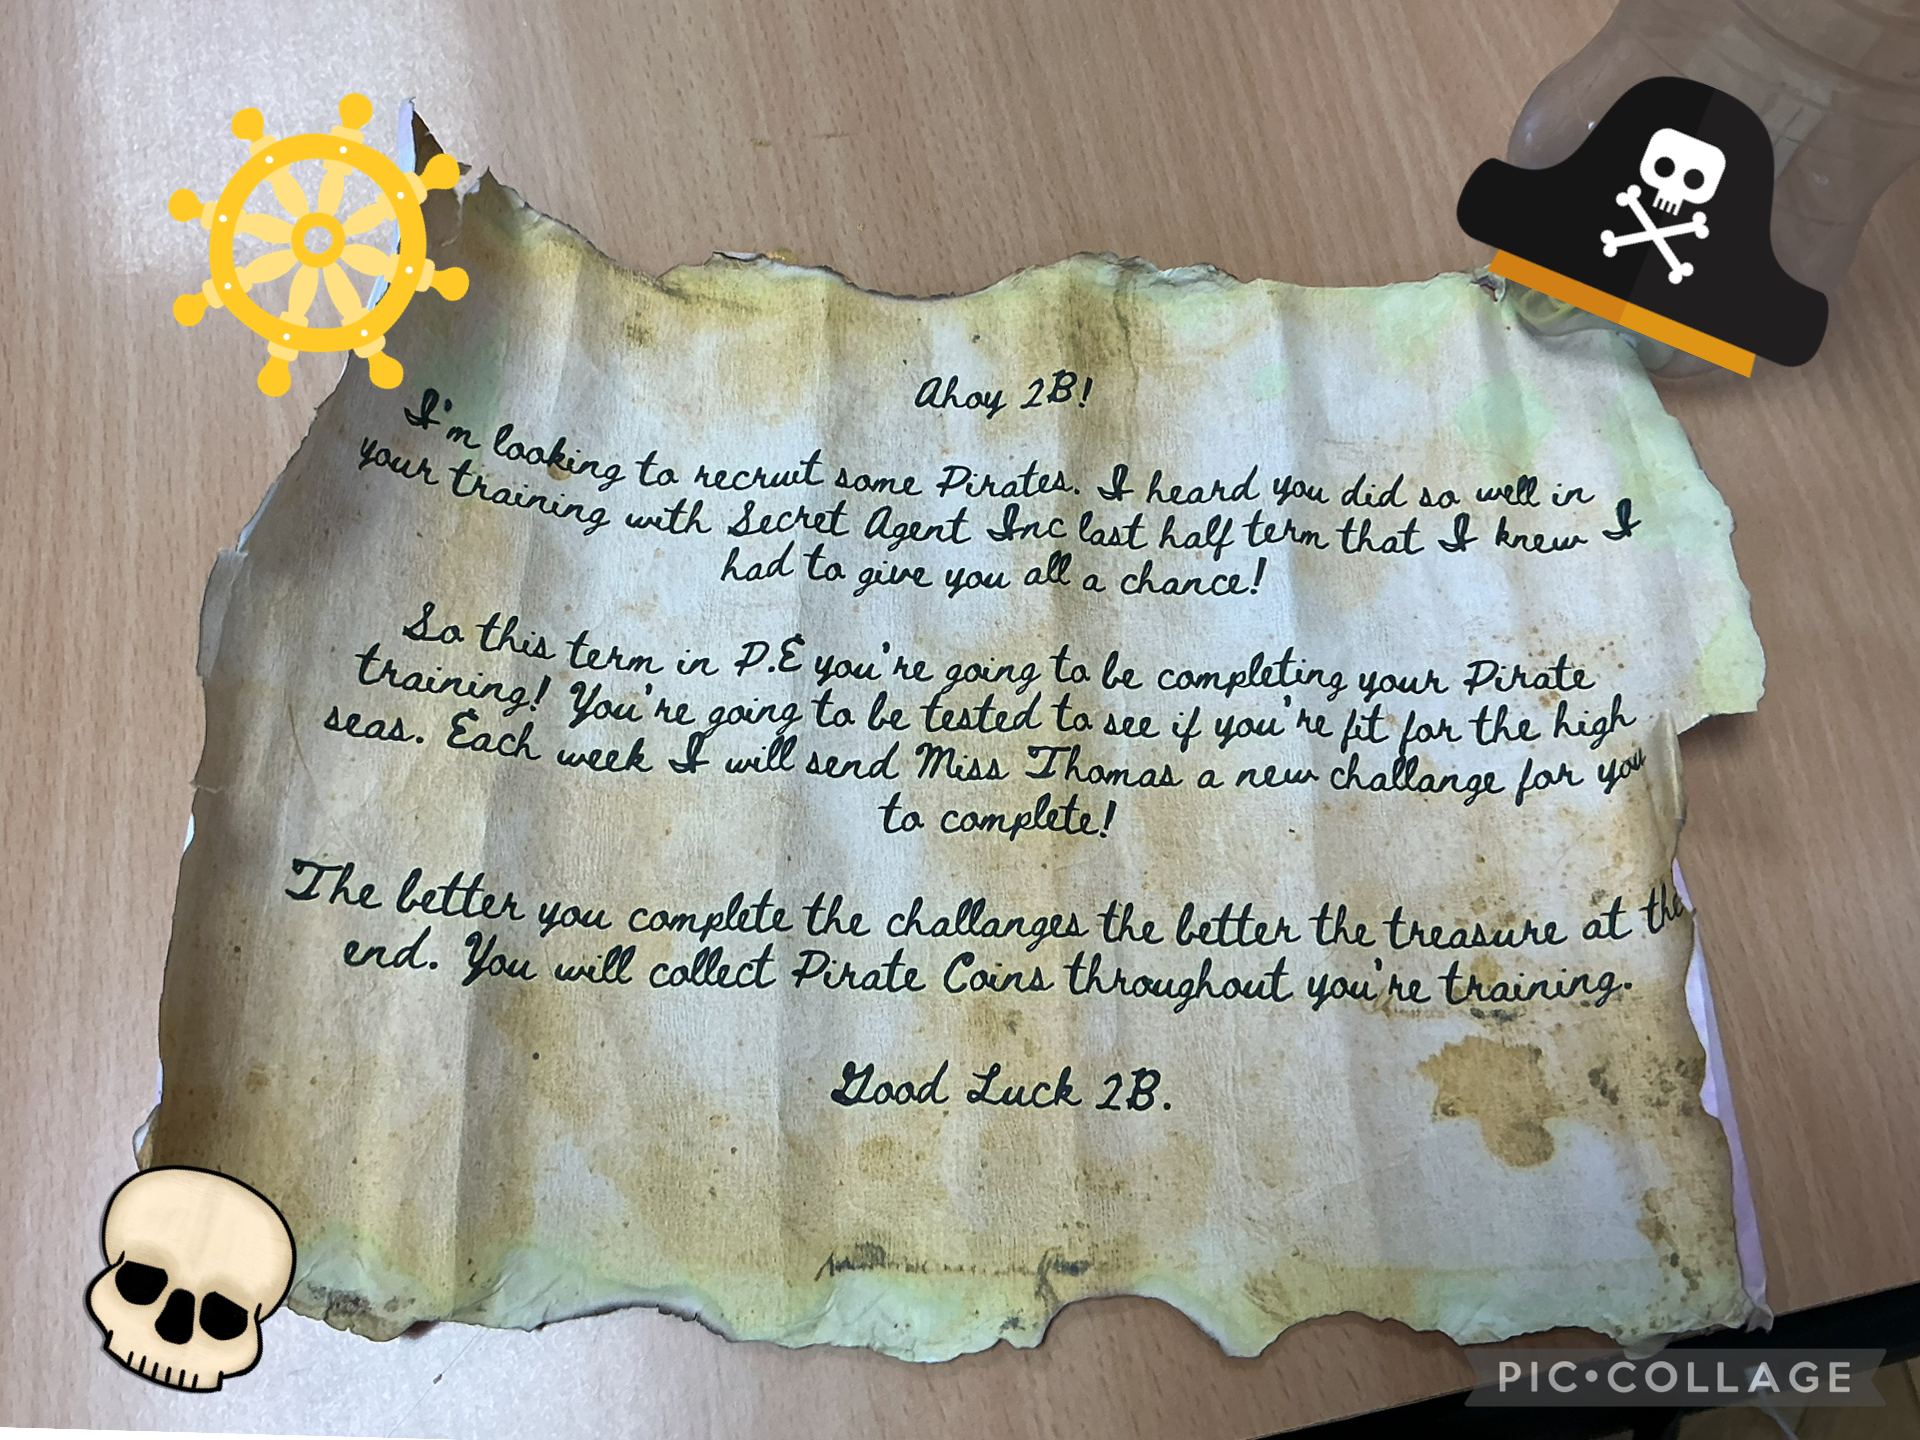 Ahoy 2B!
I'm looking to recruit some Pirates. I heard you did so well in
your training with Secret Agent Inc last half term that I knew I
had to give you all a chance!
So this term in P.E you're going to be completing your Pirate
training! You're going to be tested to see if you're fit for the high
seas. Each week I will send Miss Thomas a new challange for you
to complete!
The better you complete the challanges the better the treasure at the
end. You will collect Pirate Coins throughout you're training.
Good Luck 2B.
PIC•COLLAGE